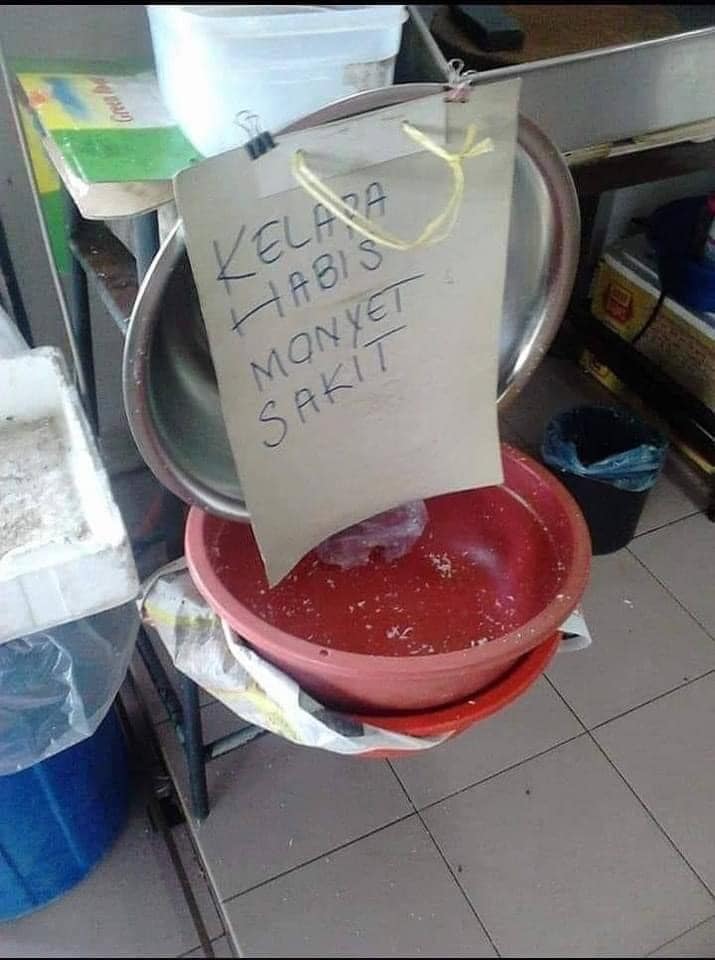 KELAPA
HABIS
MONYET
SAKIT